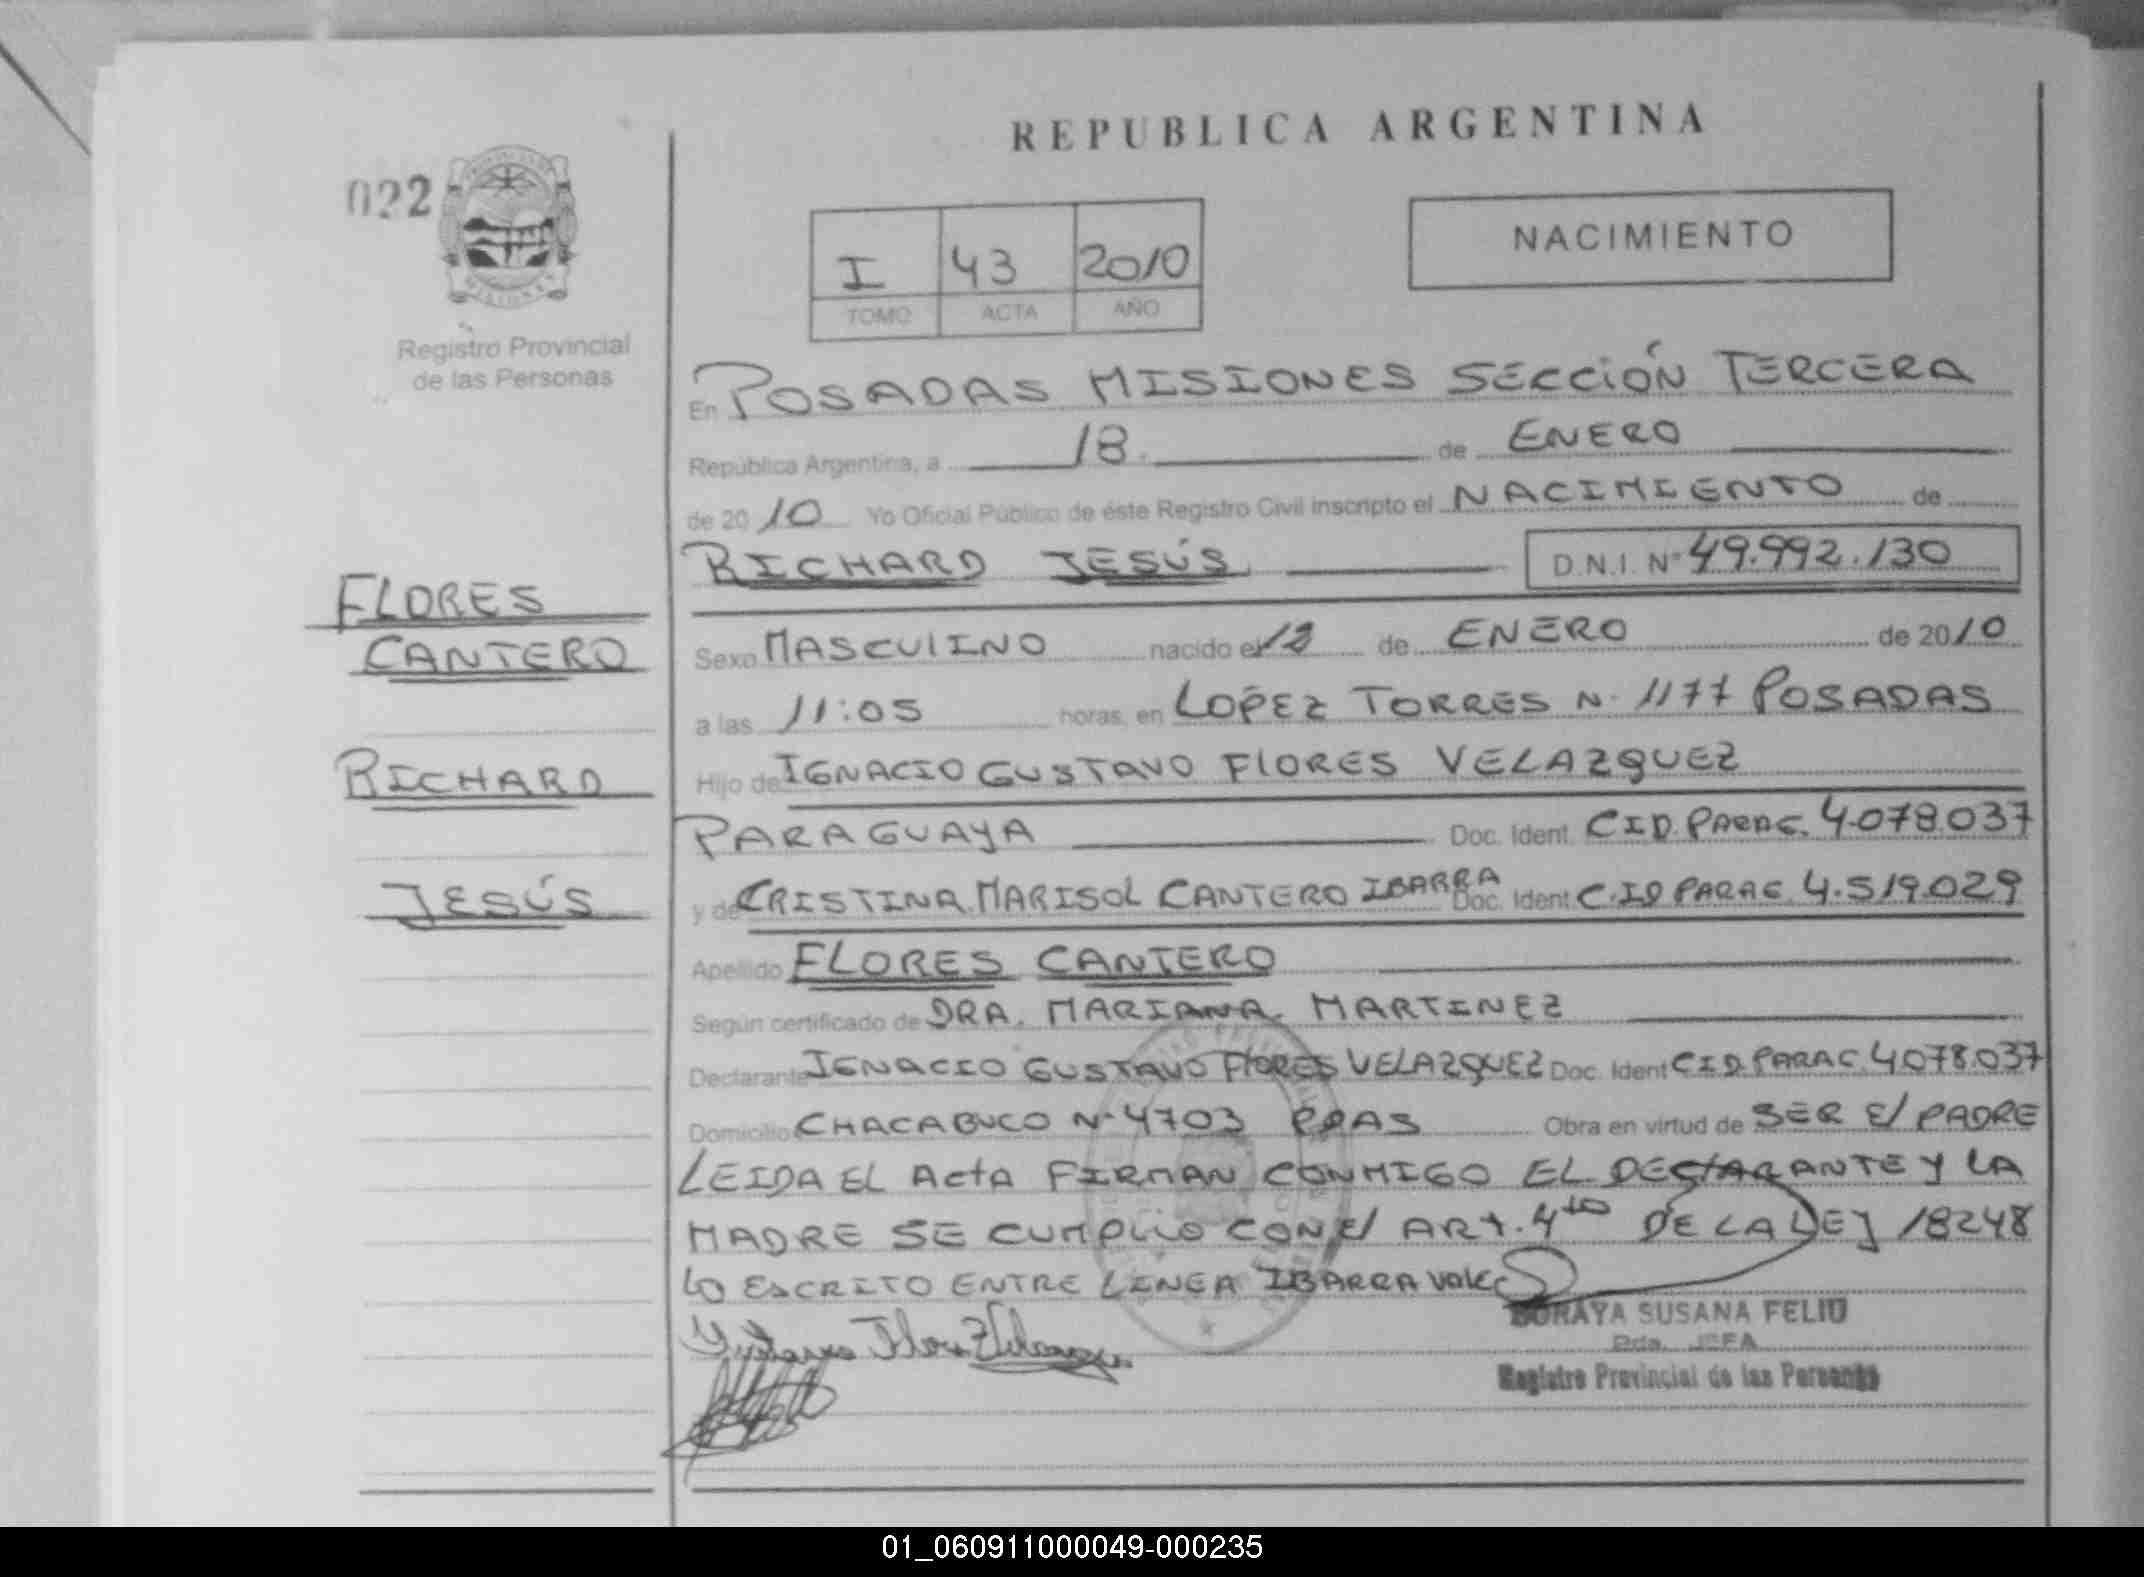 REPUBLICA ARGENTINA
022
I 43 2010
TOMO ACTA AÑO
NACIMIENTO
Registro Provincial
de las Personas
En POSADAS MISIONES SECCIÓN TERCERA
República Argentina, a 18. de ENERO
de 2010 Yo Oficial Público de éste Registro Civil inscripto el NACIMIENTO de
RICHARD JESÚS D.N.I. Nº 49.992.130
FLORES
CANTERO
RICHARD
JESÚS
Sexo MASCULINO nacido el 12 de ENERO de 2010
a las 11:05 horas, en LOPEZ TORRES N. 1177 POSADAS
Hijo de IGNACIO GUSTAVO FLORES VELAZQUEZ
PARAGUAYA Doc. Ident. C.I.D. PARAG. 4.078.037
y de CRISTINA MARISOL CANTERO IBARRA Doc. Ident C.ID PARAG. 4.519.029
Apellido FLORES CANTERO
Según certificado de DRA. MARIANA MARTINEZ
Declarante IGNACIO GUSTAVO FLORES VELAZQUEZ Doc. Ident C.I.D. PARAG. 4.078.037
Domicilio CHACABUCO Nº 4703 PDAS Obra en virtud de SER El PADRE
LEIDA EL ActA FIRMAN CONMIGO EL DEClARANTE Y LA
MADRE SE CUMPLIO CON El ARt. 4to DE LA LEY 18248
LO ESCRITO ENTRE LINEA IBARRA VALE
SORAYA SUSANA FELIU
JEFA
Registro Provincial de las Personas
01_060911000049-000235